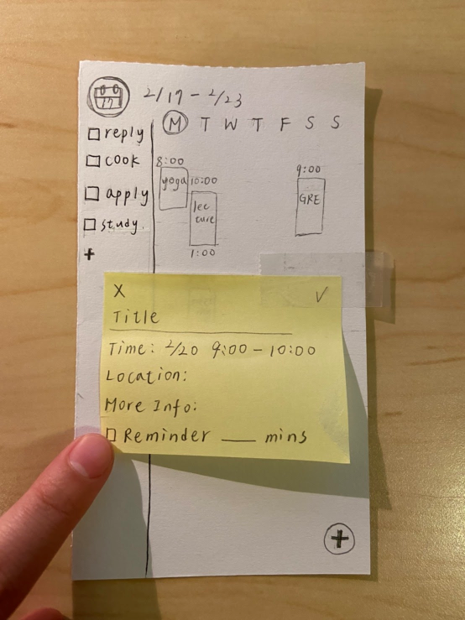 17
2/17 - 2/23
M T W T F S S
reply
cook
apply
study
+
8:00
yoga
10:00
lec
ture
1:00
9:00
GRE
X ✓
Title
Time: 2/20 9:00 - 10:00
Location:
More Info:
Reminder ___ mins
+